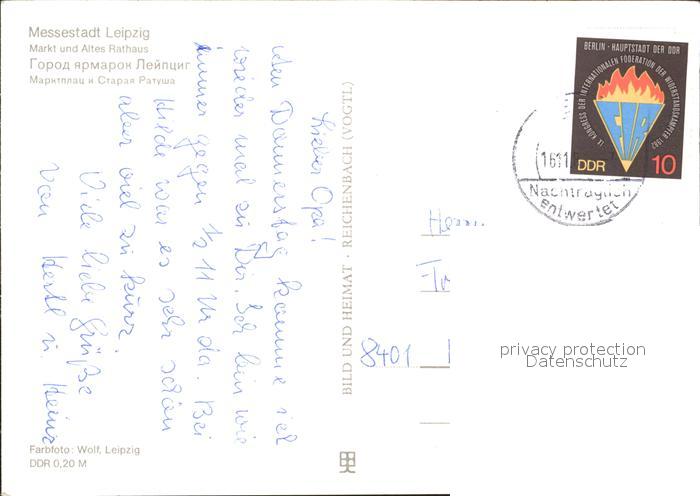 Messestadt Leipzig
Markt und Altes Rathaus
Город ярмарок Лейпциг
Марктплац и Старая Ратуша
Lieber Opa!
den Donnerstag komme ich
wieder mal zu Dir. Ich bin wie
immer gegen 1/2 11 Uhr da. Bei
Hilde war es sehr schön
aber viel zu kurz.
Viele liebe Grüße
von Hertl u. Heinz
Farbfoto: Wolf, Leipzig
DDR 0,20 M
BILD UND HEIMAT · REICHENBACH (VOGTL)
BERLIN · HAUPTSTADT DER DDR
IX. KONGRESS DER INTERNATIONALEN FÖDERATION DER WIDERSTANDSKÄMPFER 1982
FIR
DDR 10
1611
Nachträglich
entwertet
Herrn
8401
privacy protection
Datenschutz